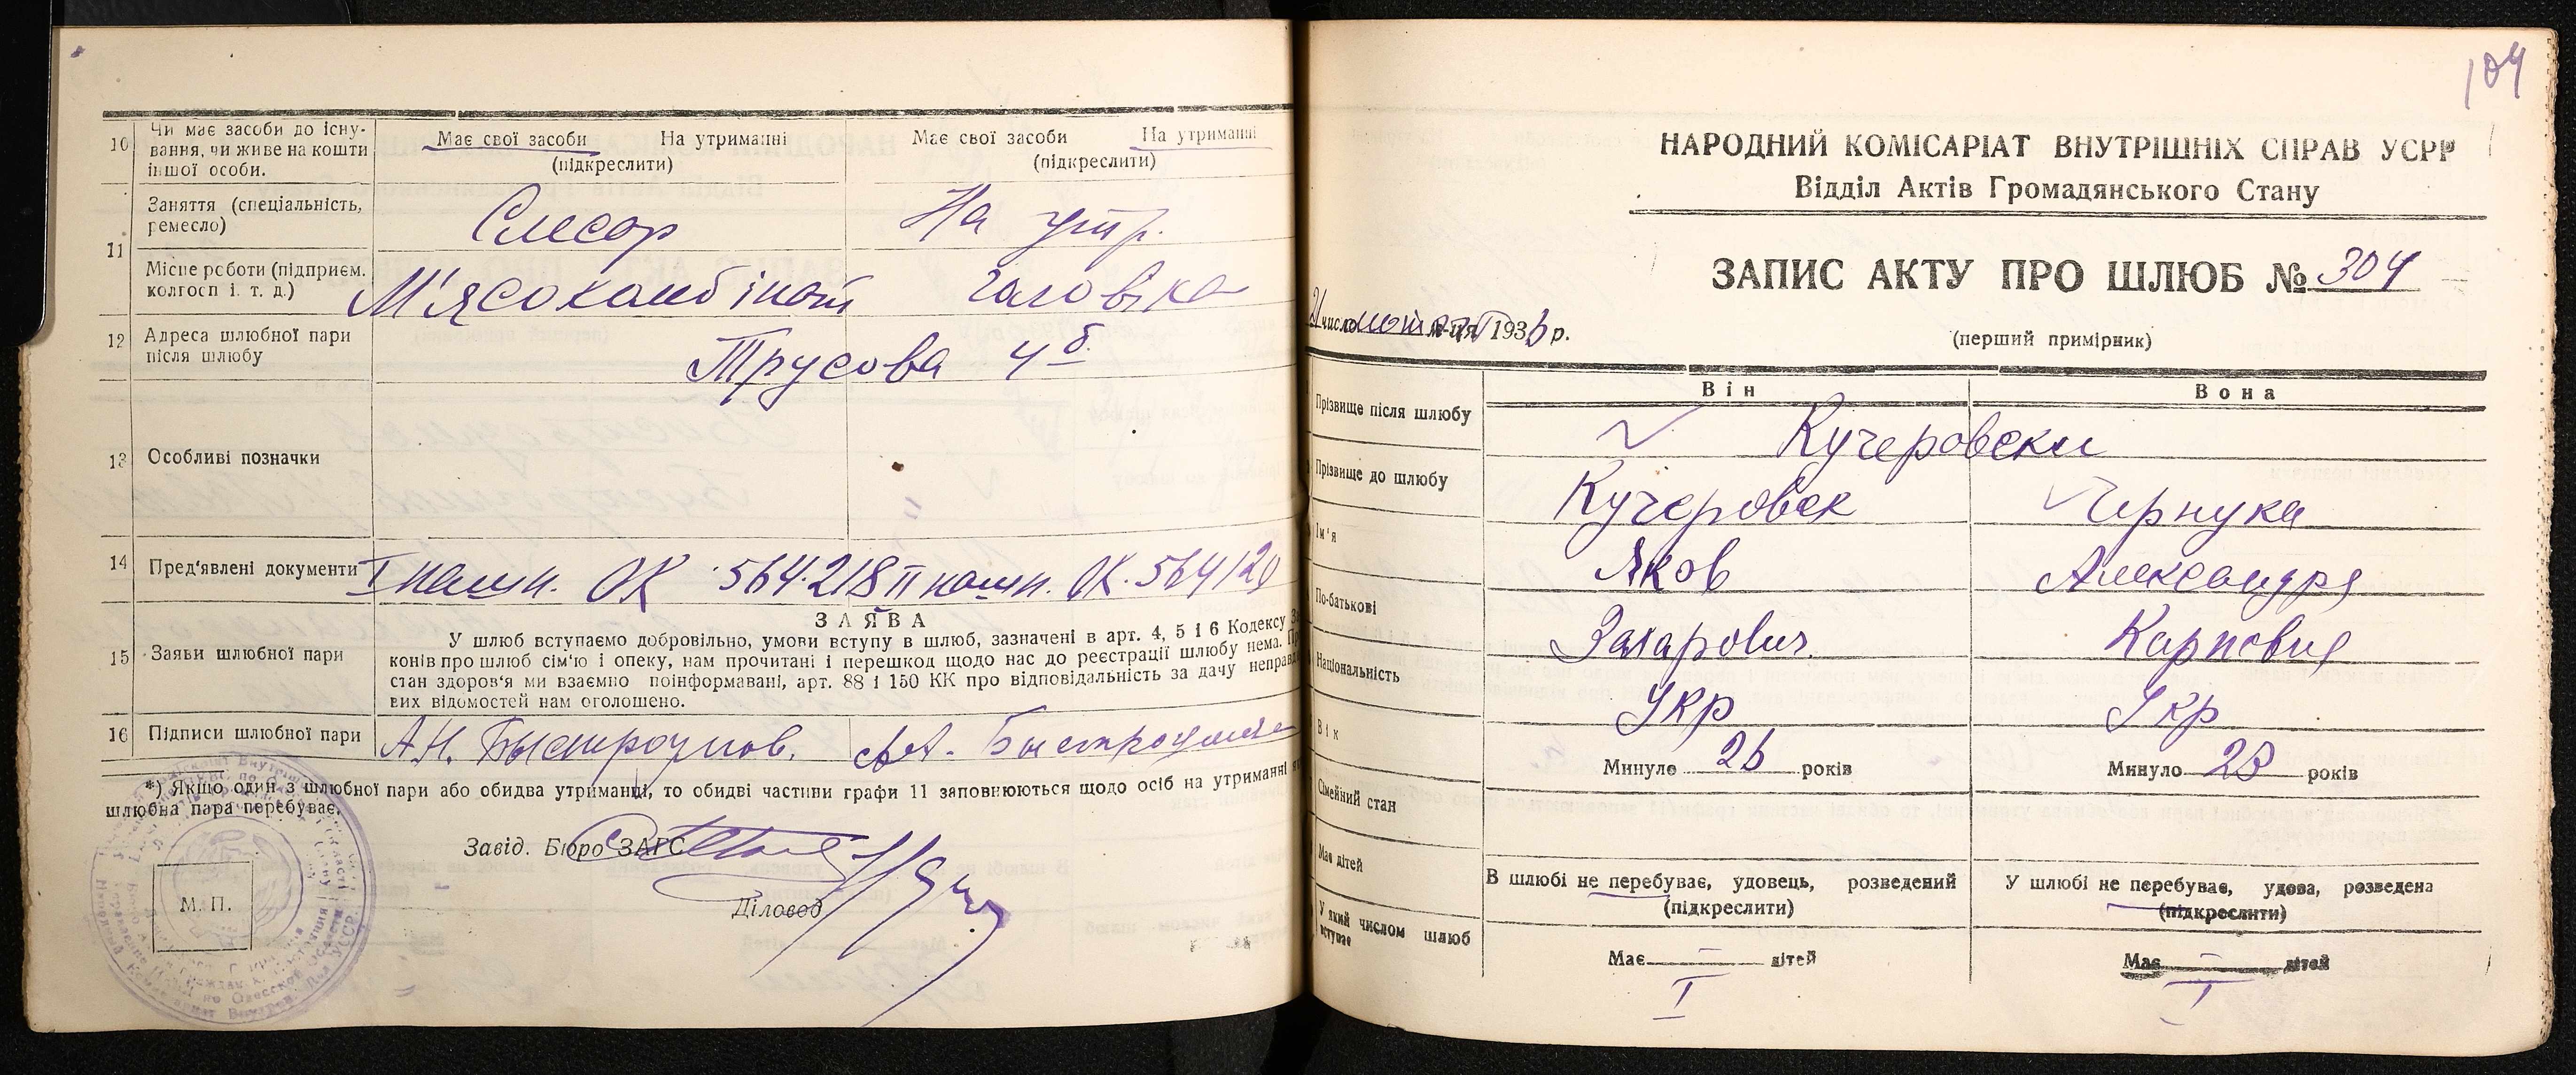 10 Чи має засоби до існу-
вання, чи живе на кошти
іншої особи.
Має свої засоби На утриманні
(підкреслити)
Має свої засоби На утриманні
(підкреслити)
11 Заняття (спеціальність,
ремесло)
Слесар
На утр.
Місце роботи (підприєм.
колгосп і. т. д.)
М'ясокомбінат
чоловіка
12 Адреса шлюбної пари
після шлюбу
Трусова 4 б.
13 Особливі позначки
14 Пред'явлені документи
I пашп. ОК 564218 II пашп. ОК. 564120
ЗАЯВА
15 Заяви шлюбної пари
У шлюб вступаємо добровільно, умови вступу в шлюб, зазначені в арт. 4, 5 і 6 Кодексу За
конів про шлюб сім'ю і опеку, нам прочитані і перешкод щодо нас до реєстрації шлюбу нема. Пр
стан здоров'я ми взаємно поінформавані, арт. 88 і 150 КК про відповідальність за дачу неправд
вих відомостей нам оголошено.
16 Підписи шлюбної пари
А.Н. Быстроумов.
*) Якщо один з шлюбної пари або обидва утриманці, то обидві частини графи 11 заповнюються щодо осіб на утриманні
шлюбна пара перебуває.
Завід. Бюро ЗАГС
Діловод
М. П.
104
НАРОДНИЙ КОМІСАРІАТ ВНУТРІШНІХ СПРАВ УСРР
Відділ Актів Громадянського Стану
ЗАПИС АКТУ ПРО ШЛЮБ № 304
21 число м-ця 1936 р.
(перший примірник)
Він Вона
Прізвище після шлюбу
Кучеровски
Прізвище до шлюбу
Кучеровск
Чернука
Ім'я
Яков
Александра
По-батькові
Захарович
Карповна
Національність
Укр
Укр
Вік
Минуло 26 років
Минуло 23 років
Сімейний стан
В шлюбі не перебуває, удовець, розведений
(підкреслити)
У шлюбі не перебуває, удова, розведена
(підкреслити)
Має дітей
Має — дітей
Має — дітей
У який числом шлюб
вступає
I
I